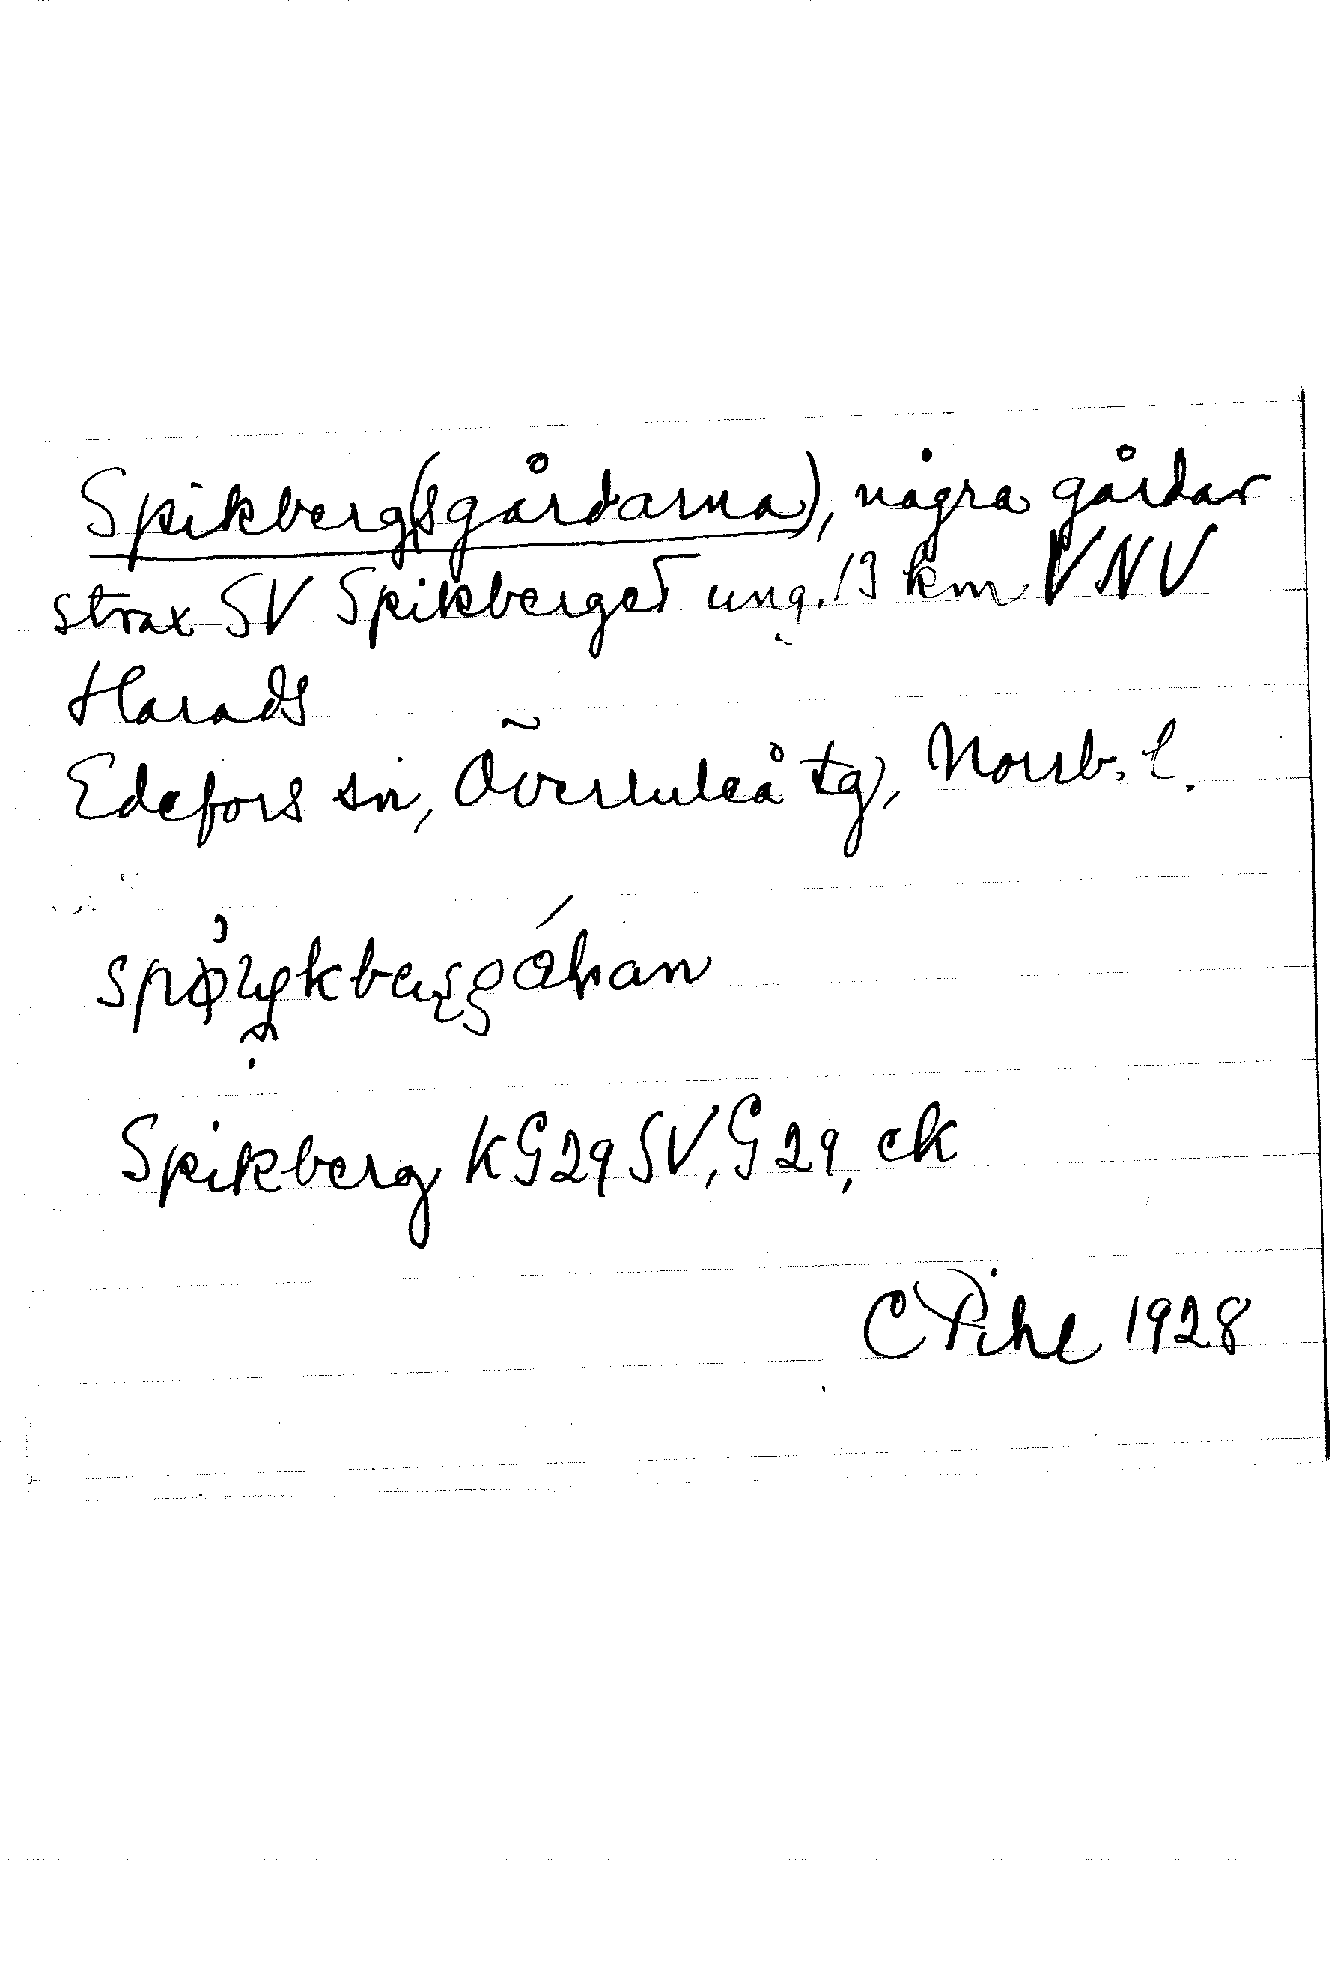 Spikberg(sgårdarna), några gårdar
strax SV Spikberget ung. 13 km VNV
Harads
Edefors sn, Överluleå tg, Norrb. l.
Spikberg KG29SV, G29, ek
C Pihl 1928